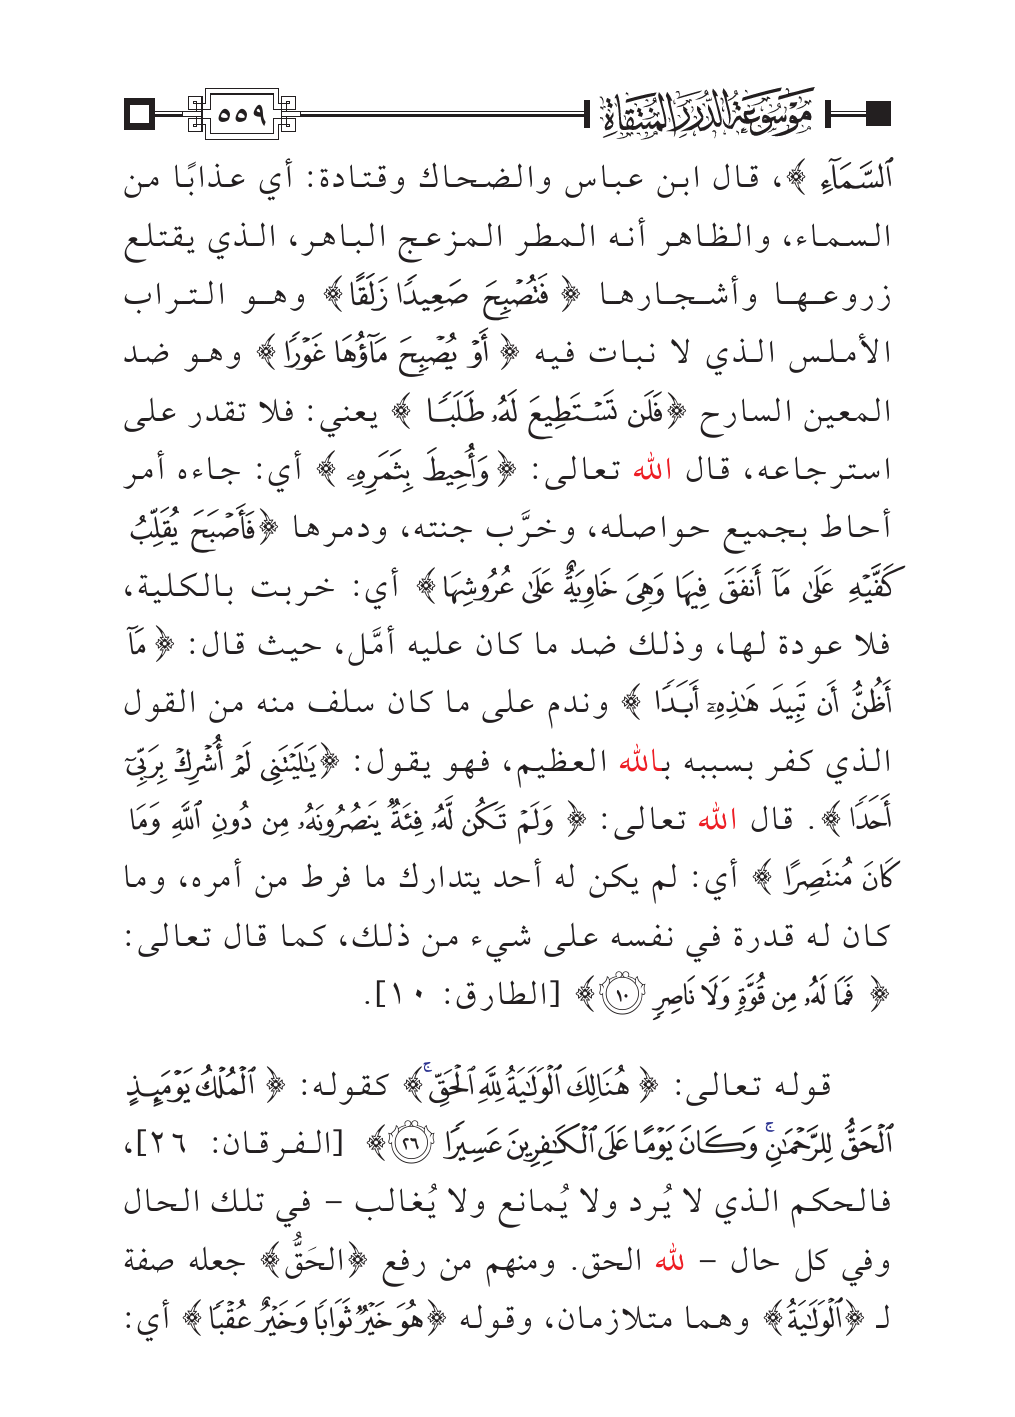 موسوعة الدرر المنتقاة ٥٥٩
ٱلسَّمَآءِ ﴾، قال ابن عباس والضحاك وقتادة: أي عذابًا من
السماء، والظاهر أنه المطر المزعج الباهر، الذي يقتلع
زروعها وأشجارها ﴿ فَتُصْبِحَ صَعِيدًا زَلَقًا ﴾ وهو التراب
الأملس الذي لا نبات فيه ﴿ أَوْ يُصْبِحَ مَآؤُهَا غَوْرًا ﴾ وهو ضد
المعين السارح ﴿ فَلَن تَسْتَطِيعَ لَهُۥ طَلَبًا ﴾ يعني: فلا تقدر على
استرجاعه، قال الله تعالى: ﴿ وَأُحِيطَ بِثَمَرِهِۦ ﴾ أي: جاءه أمر
أحاط بجميع حواصله، وخرَّب جنته، ودمرها ﴿ فَأَصْبَحَ يُقَلِّبُ
كَفَّيْهِ عَلَىٰ مَآ أَنفَقَ فِيهَا وَهِىَ خَاوِيَةٌ عَلَىٰ عُرُوشِهَا ﴾ أي: خربت بالكلية،
فلا عودة لها، وذلك ضد ما كان عليه أمَّل، حيث قال: ﴿ مَآ
أَظُنُّ أَن تَبِيدَ هَـٰذِهِۦٓ أَبَدًا ﴾ وندم على ما كان سلف منه من القول
الذي كفر بسببه بالله العظيم، فهو يقول: ﴿ يَـٰلَيْتَنِى لَمْ أُشْرِكْ بِرَبِّىٓ
أَحَدًا ﴾. قال الله تعالى: ﴿ وَلَمْ تَكُن لَّهُۥ فِئَةٌ يَنصُرُونَهُۥ مِن دُونِ ٱللَّهِ وَمَا
كَانَ مُنتَصِرًا ﴾ أي: لم يكن له أحد يتدارك ما فرط من أمره، وما
كان له قدرة في نفسه على شيء من ذلك، كما قال تعالى:
﴿ فَمَا لَهُۥ مِن قُوَّةٍ وَلَا نَاصِرٍ ١٠ ﴾ [الطارق: ١٠].
قوله تعالى: ﴿ هُنَالِكَ ٱلْوَلَـٰيَةُ لِلَّهِ ٱلْحَقِّ ۚ ﴾ كقوله: ﴿ ٱلْمُلْكُ يَوْمَئِذٍ
ٱلْحَقُّ لِلرَّحْمَـٰنِ ۚ وَكَانَ يَوْمًا عَلَى ٱلْكَـٰفِرِينَ عَسِيرًا ٢٦ ﴾ [الفرقان: ٢٦]،
فالحكم الذي لا يُرد ولا يُمانع ولا يُغالب – في تلك الحال
وفي كل حال – لله الحق. ومنهم من رفع ﴿ الحَقُّ ﴾ جعله صفة
لـ ﴿ ٱلْوَلَـٰيَةُ ﴾ وهما متلازمان، وقوله ﴿ هُوَ خَيْرٌ ثَوَابًا وَخَيْرٌ عُقْبًا ﴾ أي: